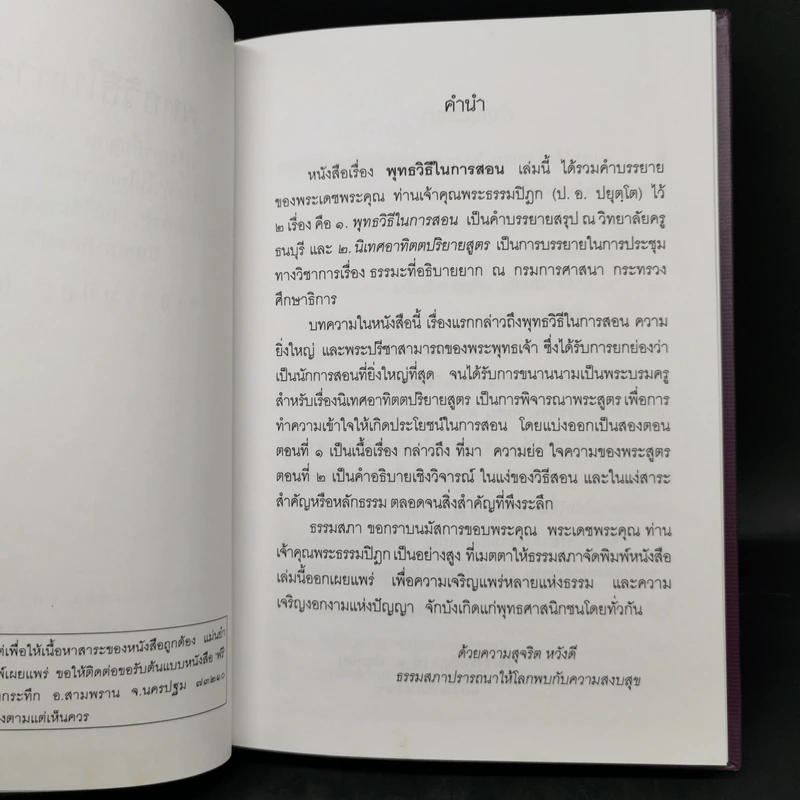 ต่เพื่อให้เนื้อหาสาระของหนังสือถูกต้อง แม่นยำ
พ์เผยแพร่ ขอให้ติดต่อขอรับต้นแบบหนังสือ ฟรี
กระทึก อ.สามพราน จ.นครปฐม ๗๓๒๑๐
งตามแต่เห็นควร
คำนำ
หนังสือเรื่อง พุทธวิธีในการสอน เล่มนี้ ได้รวมคำบรรยาย
ของพระเดชพระคุณ ท่านเจ้าคุณพระธรรมปิฎก (ป. อ. ปยุตฺโต) ไว้
๒ เรื่อง คือ ๑. พุทธวิธีในการสอน เป็นคำบรรยายสรุป ณ วิทยาลัยครู
ธนบุรี และ ๒. นิเทศอาทิตตปริยายสูตร เป็นการบรรยายในการประชุม
ทางวิชาการเรื่อง ธรรมะที่อธิบายยาก ณ กรมการศาสนา กระทรวง
ศึกษาธิการ
บทความในหนังสือนี้ เรื่องแรกกล่าวถึงพุทธวิธีในการสอน ความ
ยิ่งใหญ่ และพระปรีชาสามารถของพระพุทธเจ้า ซึ่งได้รับการยกย่องว่า
เป็นนักการสอนที่ยิ่งใหญ่ที่สุด จนได้รับการขนานนามเป็นพระบรมครู
สำหรับเรื่องนิเทศอาทิตตปริยายสูตร เป็นการพิจารณาพระสูตร เพื่อการ
ทำความเข้าใจให้เกิดประโยชน์ในการสอน โดยแบ่งออกเป็นสองตอน
ตอนที่ ๑ เป็นเนื้อเรื่อง กล่าวถึง ที่มา ความย่อ ใจความของพระสูตร
ตอนที่ ๒ เป็นคำอธิบายเชิงวิจารณ์ ในแง่ของวิธีสอน และในแง่สาระ
สำคัญหรือหลักธรรม ตลอดจนสิ่งสำคัญที่พึงระลึก
ธรรมสภา ขอกราบนมัสการขอบพระคุณ พระเดชพระคุณ ท่าน
เจ้าคุณพระธรรมปิฎก เป็นอย่างสูง ที่เมตตาให้ธรรมสภาจัดพิมพ์หนังสือ
เล่มนี้ออกเผยแพร่ เพื่อความเจริญแพร่หลายแห่งธรรม และความ
เจริญงอกงามแห่งปัญญา จักบังเกิดแก่พุทธศาสนิกชนโดยทั่วกัน
ด้วยความสุจริต หวังดี
ธรรมสภาปรารถนาให้โลกพบกับความสงบสุข